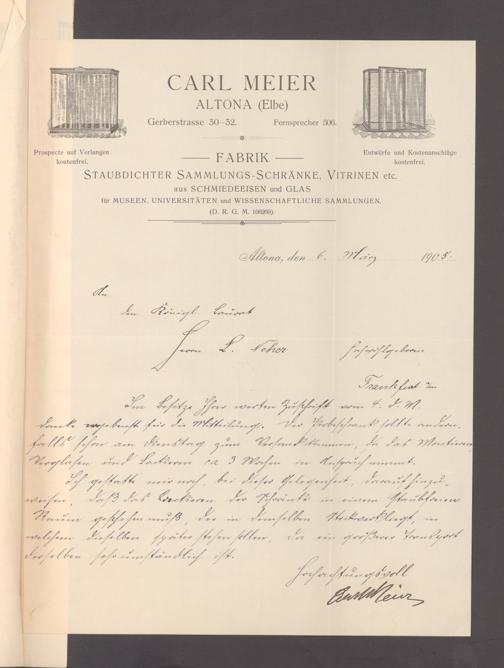 CARL MEIER
ALTONA (Elbe)
Gerberstrasse 30-32. Fernsprecher 506.
Prospecte auf Verlangen
kostenfrei.
Entwürfe und Kostenanschläge
kostenfrei.
FABRIK
STAUBDICHTER SAMMLUNGS-SCHRÄNKE, VITRINEN etc.
aus SCHMIEDEEISEN und GLAS
für MUSEEN, UNIVERSITÄTEN und WISSENSCHAFTLICHE SAMMLUNGEN.
(D. R. G. M. 166269).
Altona, den 6. März 1905.
An
den Königl. Baurat
Herrn L. Neher
Frankfurt
Im Besitze Ihrer werten Zuschrift vom 4. d. M.
danke ergebenst für die Mitteilung. Der sollte andern-
falls schon am Dienstag zum Versand kommen, da das Montieren
Verglasen und Lackieren ca 3 Wochen in Anspruch nimmt.
Ich gestatte mir noch, bei dieser Gelegenheit, darauf hinzu-
weisen, daß das Lackieren der Schränke in einem staubfreien
Raum geschehen muß, der in demselben Stockwerk liegt, in
welchem dieselben später stehen sollen, da ein größerer Transport
derselben sehr umständlich ist.
Hochachtungsvoll
Carl Meier